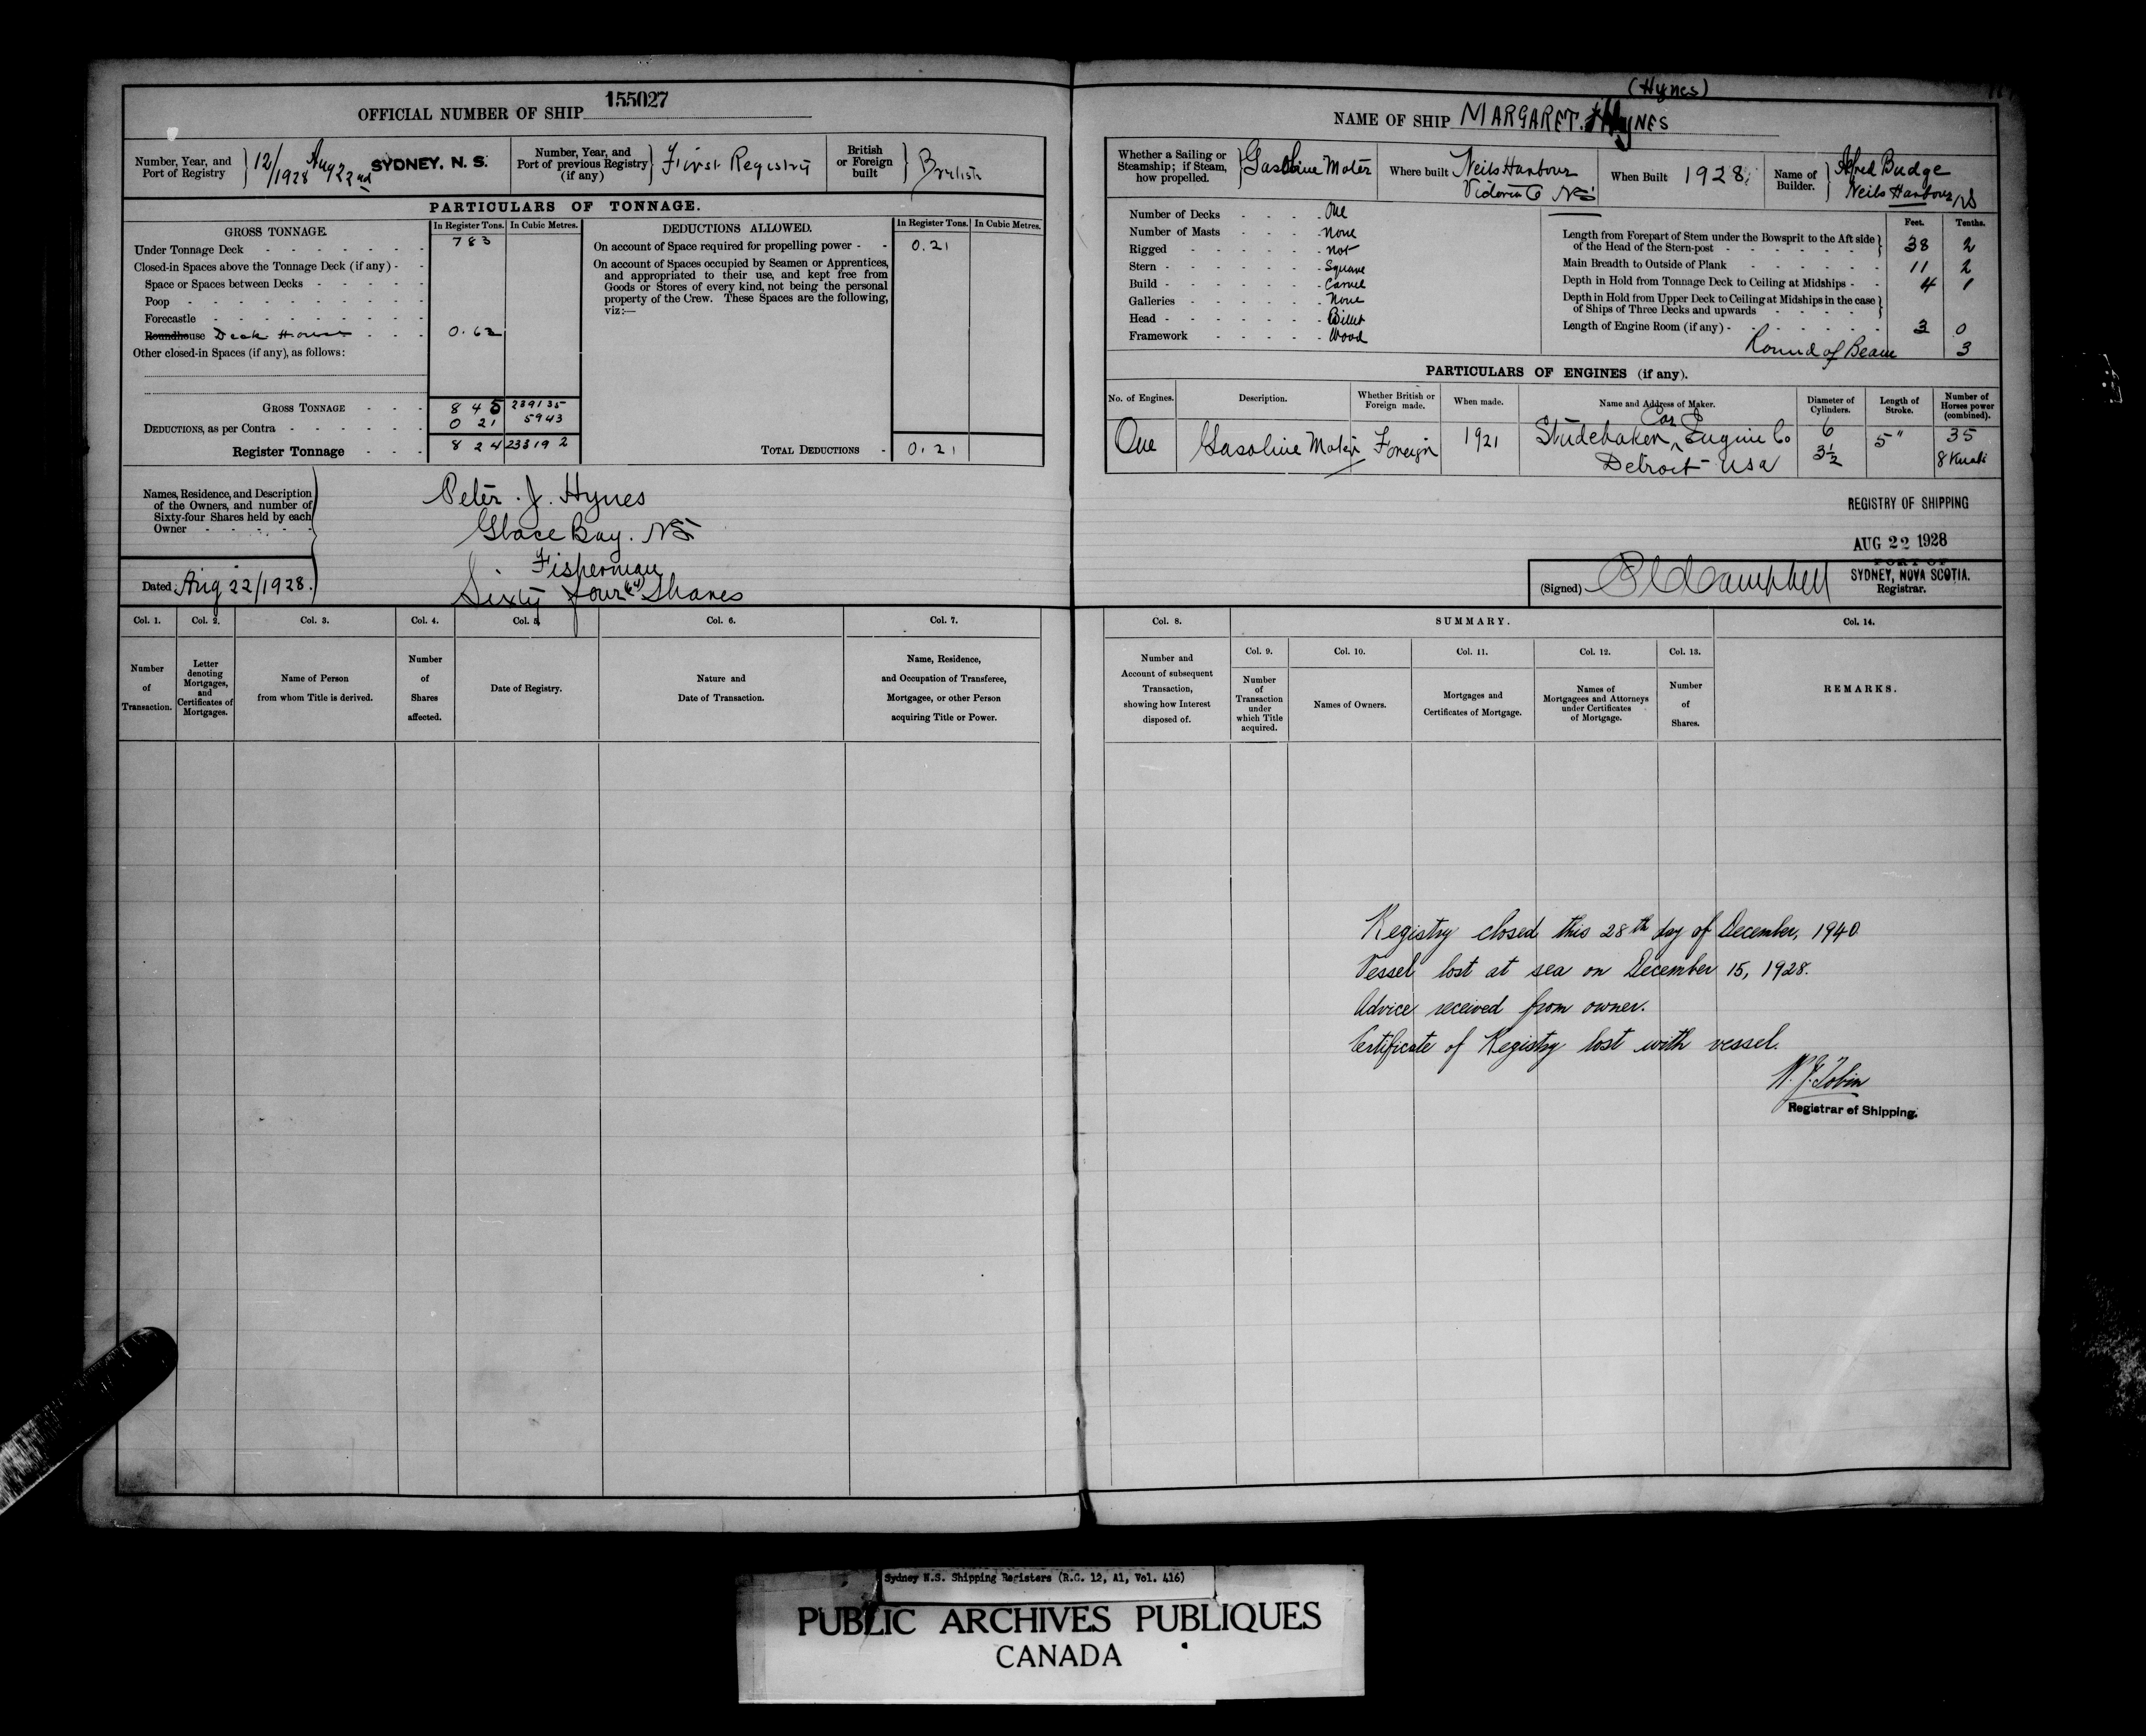 OFFICIAL NUMBER OF SHIP 155027
Number, Year, and Port of Registry 12/1928 Aug 22nd SYDNEY, N. S.
Number, Year, and Port of previous Registry (if any) First Registry
British or Foreign built British
PARTICULARS OF TONNAGE.
GROSS TONNAGE. In Register Tons. In Cubic Metres.
Under Tonnage Deck 7 8 3
Closed-in Spaces above the Tonnage Deck (if any) -
Space or Spaces between Decks
Poop
Forecastle
Roundhouse Deck House 0. 62
Other closed-in Spaces (if any), as follows:
GROSS TONNAGE 8 4 5 239135
DEDUCTIONS, as per Contra 0 21 5943
Register Tonnage 8 2 4 23319 2
DEDUCTIONS ALLOWED. In Register Tons. In Cubic Metres.
On account of Space required for propelling power - 0.21
On account of Spaces occupied by Seamen or Apprentices,
and appropriated to their use, and kept free from
Goods or Stores of every kind, not being the personal
property of the Crew. These Spaces are the following,
viz:—
TOTAL DEDUCTIONS 0.21
Names, Residence, and Description
of the Owners, and number of
Sixty-four Shares held by each
Owner
Peter. J. Hynes
Glace Bay. NS
Fisherman
Sixty four (64) Shares
Dated Aug 22/1928.
Col. 1. Col. 2. Col. 3. Col. 4. Col. 5. Col. 6. Col. 7.
Number of Transaction.
Letter denoting Mortgages, and Certificates of Mortgages.
Name of Person from whom Title is derived.
Number of Shares affected.
Date of Registry.
Nature and Date of Transaction.
Name, Residence, and Occupation of Transferee, Mortgagee, or other Person acquiring Title or Power.
(Hynes)
NAME OF SHIP MARGARET. HYNES
Whether a Sailing or Steamship; if Steam, how propelled. Gasoline Motor
Where built Neils Harbour Victoria Co NS
When Built 1928.
Name of Builder. Alfred Budge Neils Harbour, NS
Number of Decks One
Number of Masts None
Rigged not
Stern Square
Build Carvel
Galleries None
Head Billet
Framework Wood
Feet. Tenths.
Length from Forepart of Stem under the Bowsprit to the Aft side of the Head of the Stern-post 38 2
Main Breadth to Outside of Plank 11 2
Depth in Hold from Tonnage Deck to Ceiling at Midships - 4 1
Depth in Hold from Upper Deck to Ceiling at Midships in the case of Ships of Three Decks and upwards
Length of Engine Room (if any) - 3 0
Round of Beam 3
PARTICULARS OF ENGINES (if any).
No. of Engines. Description. Whether British or Foreign made. When made. Name and Address of Maker. Diameter of Cylinders. Length of Stroke. Number of Horses power (combined).
One Gasoline Motor Foreign 1921 Studebaker Car & Engine Co Detroit USA 6 3½ 5" 35 8 Knots
REGISTRY OF SHIPPING
AUG 22 1928
PORT OF
SYDNEY, NOVA SCOTIA.
(Signed) Campbell Registrar.
Col. 8. SUMMARY. Col. 14.
Col. 9. Col. 10. Col. 11. Col. 12. Col. 13.
Number and Account of subsequent Transaction, showing how Interest disposed of.
Number of Transaction under which Title acquired.
Names of Owners.
Mortgages and Certificates of Mortgage.
Names of Mortgagees and Attorneys under Certificates of Mortgage.
Number of Shares.
REMARKS.
Registry closed this 28th day of December, 1940
Vessel lost at sea on December 15, 1928.
Advice received from owner.
Certificate of Registry lost with vessel.
W. J. Tobin
Registrar of Shipping.
Sydney N.S. Shipping Registers (R.G. 12, A1, Vol. 416)
PUBLIC ARCHIVES PUBLIQUES
CANADA